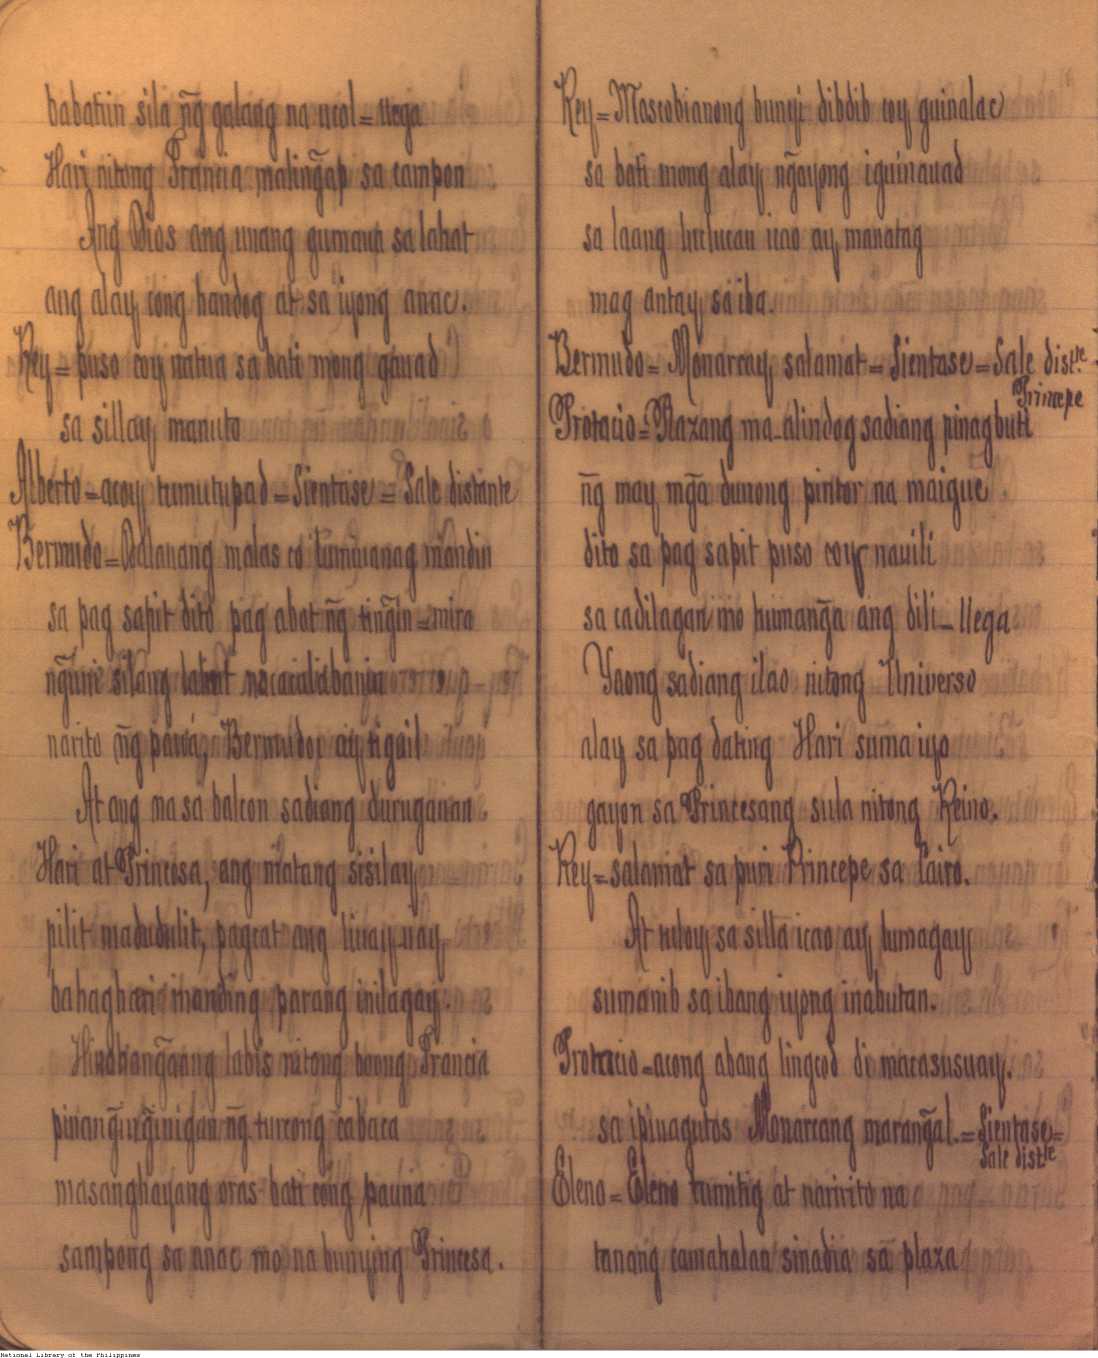 babatiin sila ñg galang na ucol = llega
Hari nitong Francia malingap sa campon
Ang Dios ang unang gumaua sa lahat
ang alay cong handog at sa iyong anac.
Rey = puso coy natua sa bati mong gauad
sa sillay manuto
Alberto = acoy tumutupad = Sientase = Sale distante
Bermudo = Dalauang malas co tumuanag mandin
sa pag sapit dito pag abot ñg tiñgin = mira
ñguni silang lahat nacacalibanja
narito ñg paua, Bermudoy ay tigail
At ang na sa balcon sadiang durugañan
Hari at Princesa, ang matang sisilay
pilit madudulit, pagcat ang liuay uay
bahaghari manding parang inilagay.
Hinahangaang labis nitong boong Francia
pinañgiñgiñigan ñg turcong cabaca
masanghayang oras bati cong pauna
sampong sa anac mo na bunying Princesa.
Rey = Mascobianong bunyi dibdib coy guinalac
sa bati mong alay ñgayong iguinauad
sa laang luclucan icao ay manatag
mag antay sa iba.
Bermudo = Monarcay salamat = Sientase = Sale dis.te
Princepe
Protacio = Plazang ma-alindog sadiang pinagbuti
ñg may mga dunong pintor na maigue
dito sa pag sapit puso coy nauili
sa cadilagan mo humanga ang dili - llega
Yaong sadiang ilao nitong Universo
alay sa pag dating Hari suma iyo
gayon sa Princesang sula nitong Reino.
Rey = salamat sa puri Princepe sa Cairo.
At tuloy sa silla icao ay lumagay
sumanib sa ibang iyong inabutan.
Protacio = acong abang lingcod di macasusuay.
sa ipinagutos Monarcang marangal. = Sientase =
Sale dist.te
Eleno = Eleno tumitig at naririto na
tanang camahalan sinadia sa plaza
National Library of the Philippines